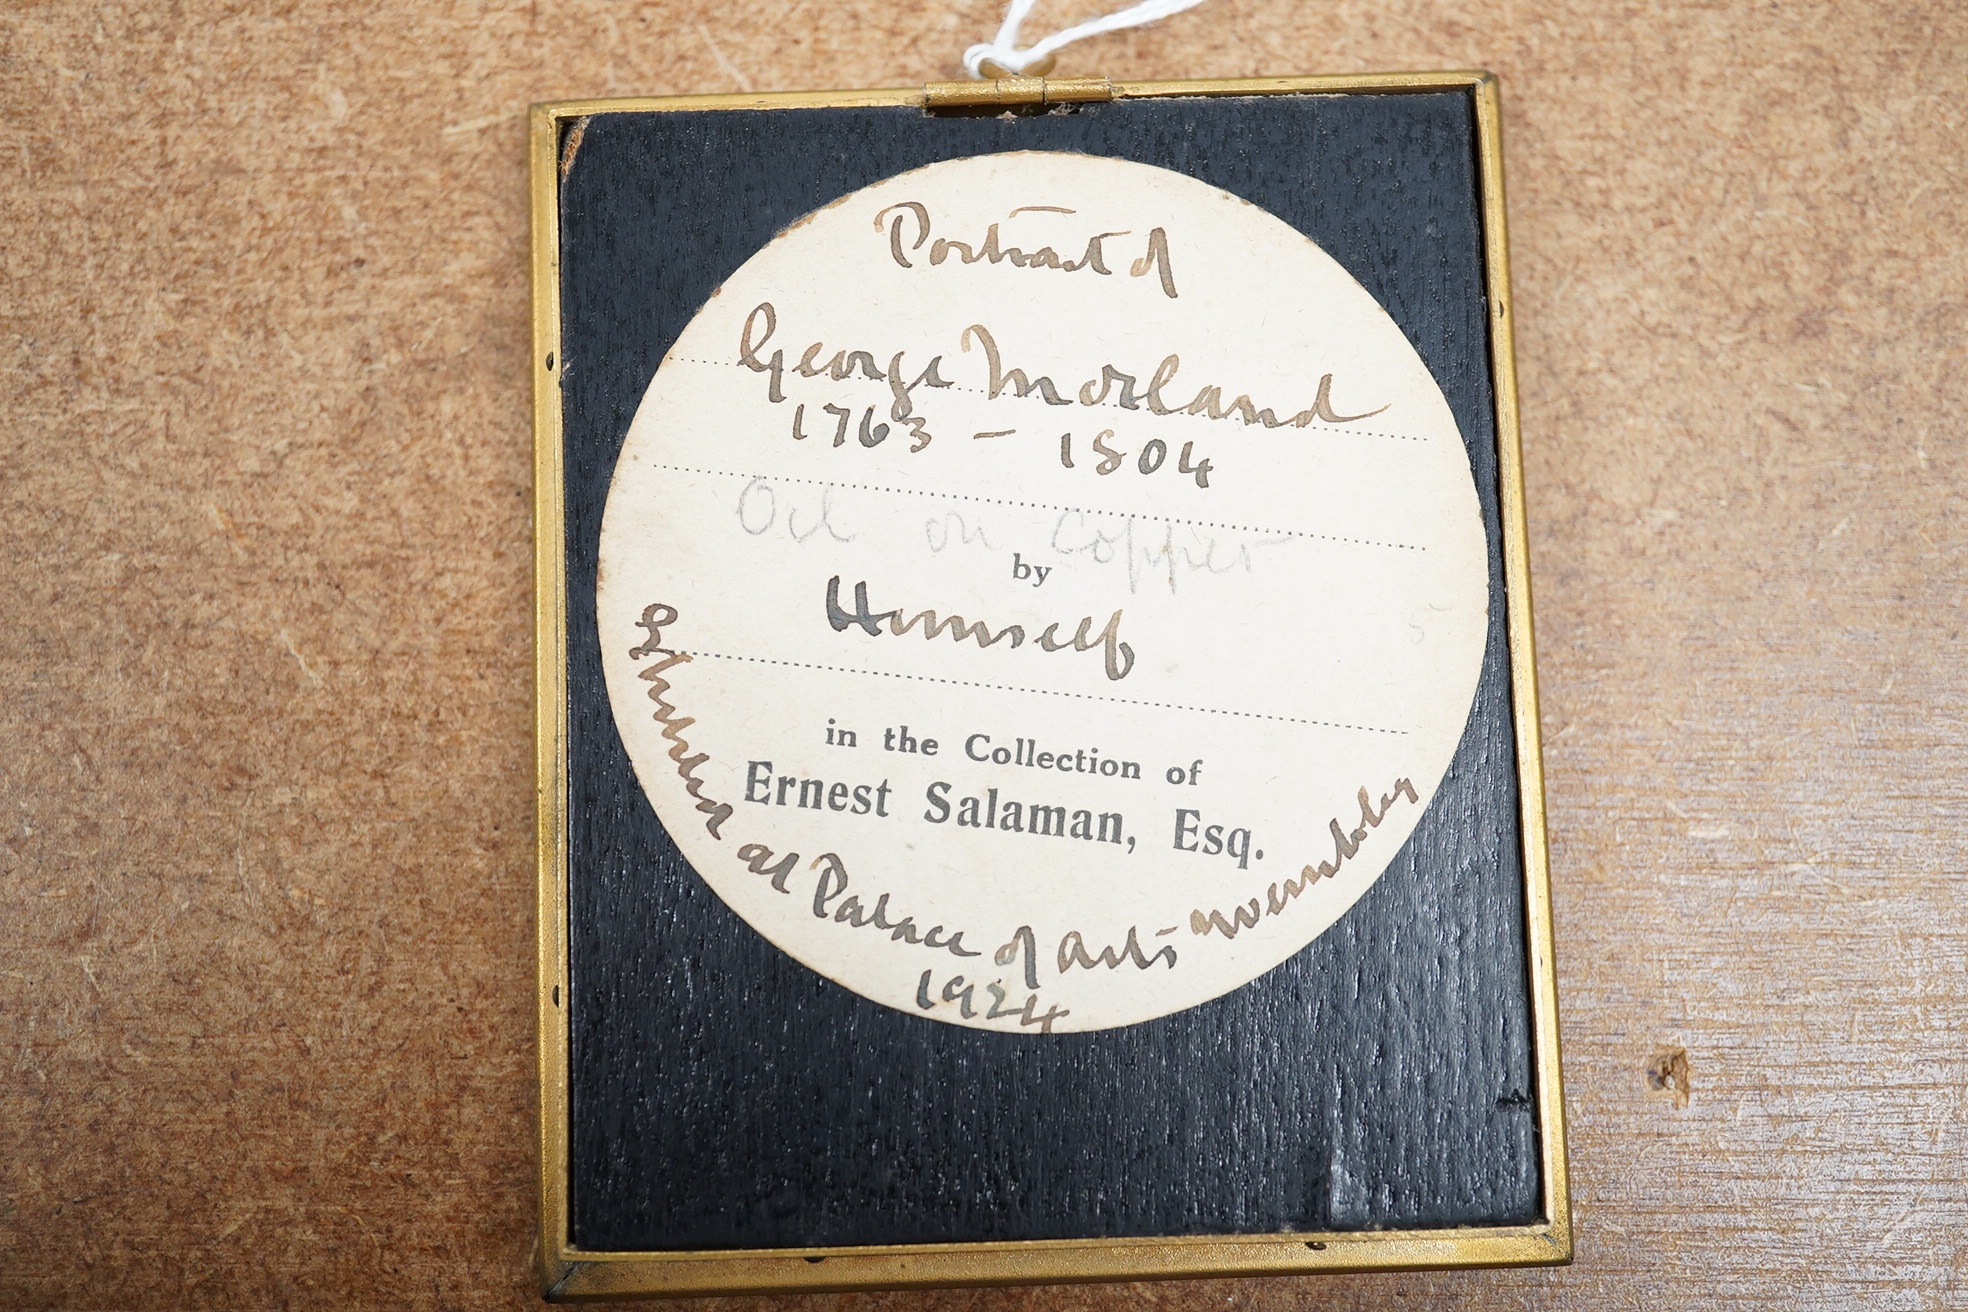 Portrait of
George Morland
1763 - 1804
Oil on Copper
by
Himself
in the Collection of
Ernest Salaman, Esq.
Exhibited at Palace of Arts November
1924